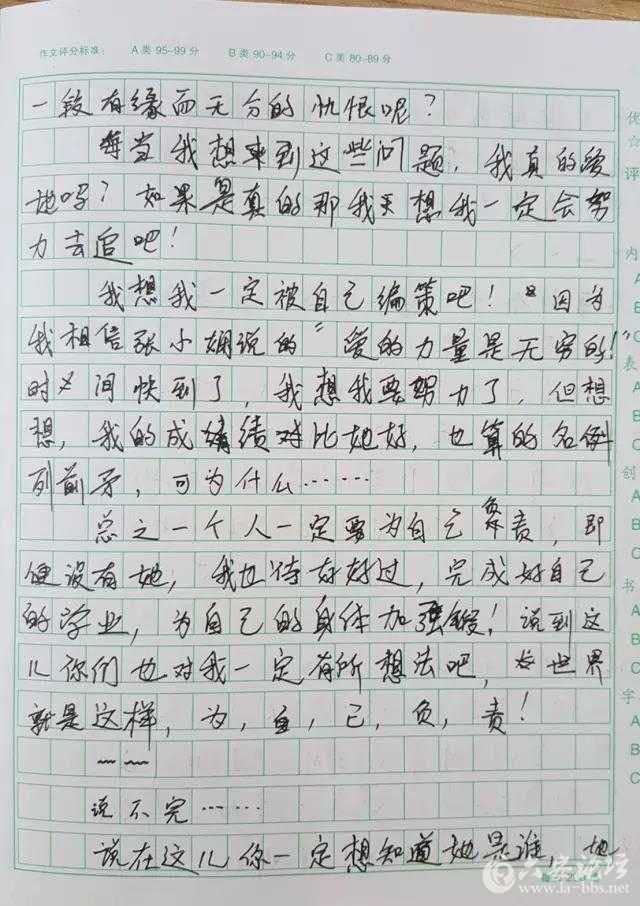 作文评分标准： A类95-99分 B类90-94分 C类80-89分
一段有缘而无分的忱恨呢？
每当我想来到这些问题，我真的爱
她吗？如果是真的那我想我一定会努
力去追吧！
我想我一定被自己鞭策吧！因为
我相信张小娴说的“爱的力量是无穷的！”
时间快到了，我想我要努力了，但想
想，我的成绩对比她好，也算的名例
列前矛，可为什么……
总之一个人一定要为自己负责，即
便没有她，我也待好好过，完成好自己
的学业，为自己的身体加强锻！说到这
儿你们也对我一定有所想法吧，世界
就是这样，为，自，己，负，责！
说不完……
说在这儿你一定想知道她是谁，她
优
☆
评
内
A
B
C
表
A
B
C
创
A
B
C
书
A
B
C
字
A
B
C
六安论坛
www.la-bbs.net